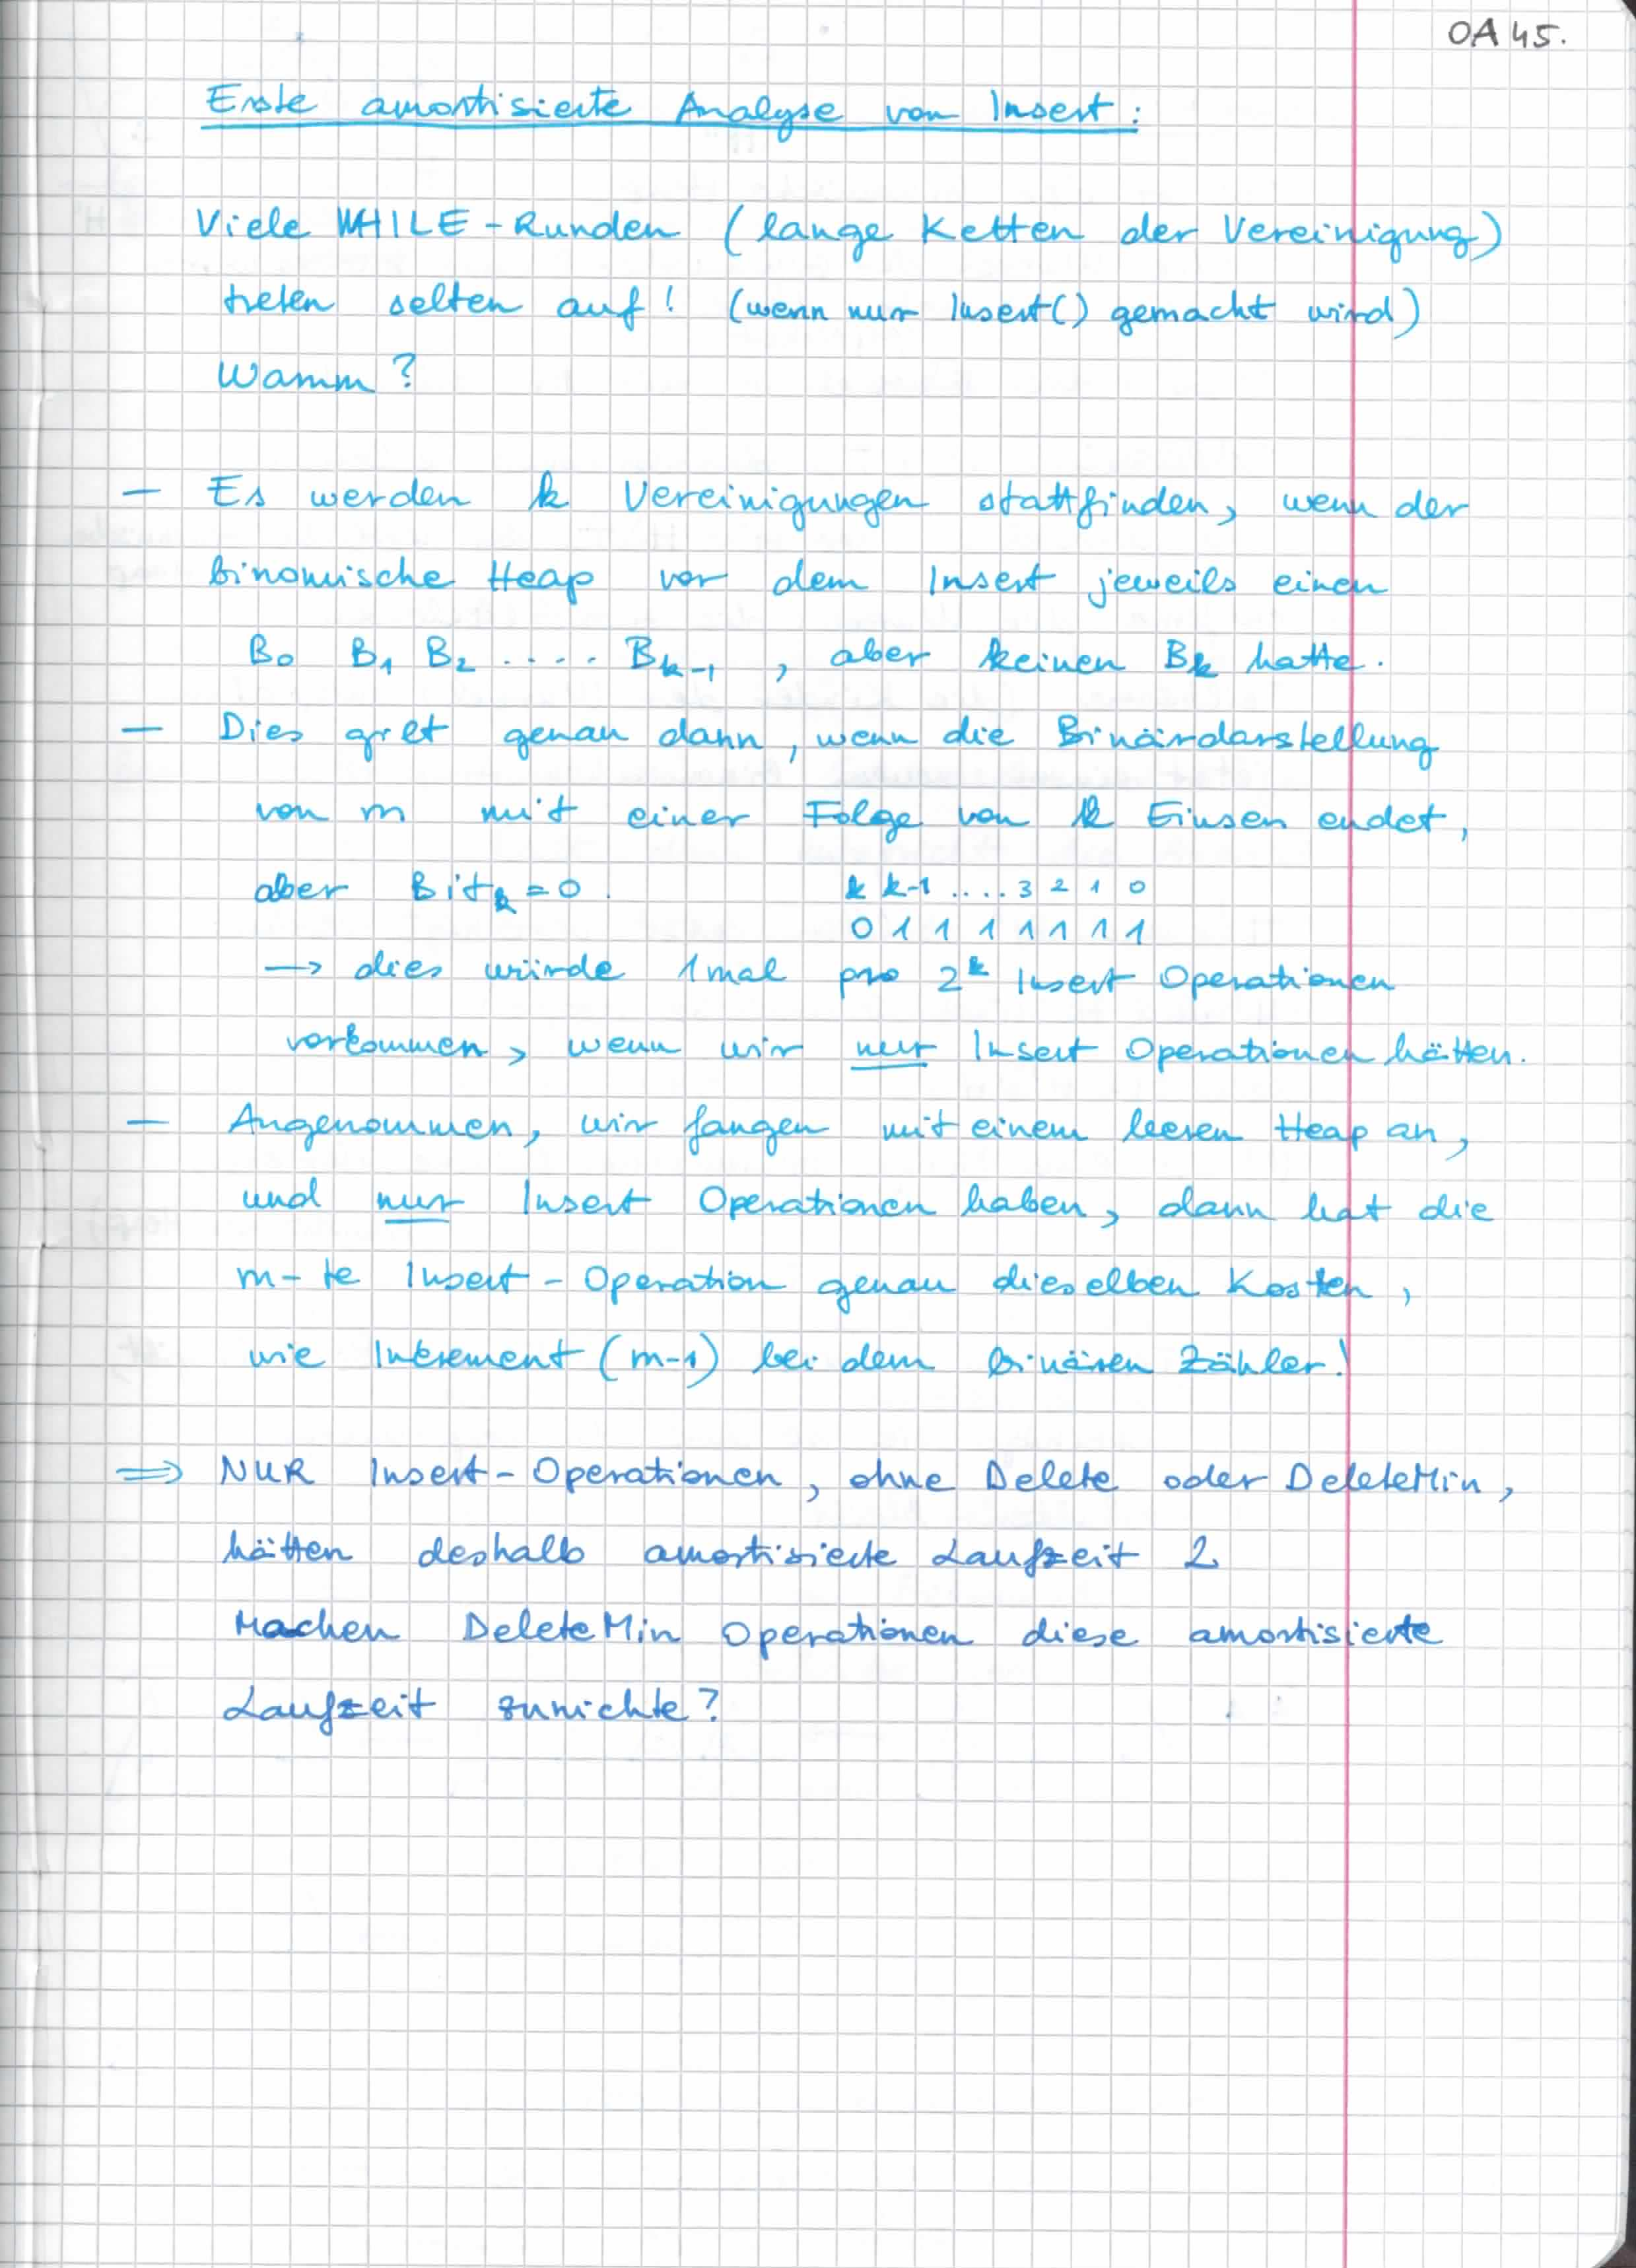 OA 45.
Erste amortisierte Analyse von Insert:
Viele WHILE-Runden (lange Ketten der Vereinigung)
treten selten auf! (wenn nur Insert() gemacht wird)
Warum?
— Es werden k Vereinigungen stattfinden, wenn der
binomische Heap vor dem Insert jeweils einen
B₀ B₁ B₂ .... Bₖ₋₁ , aber keinen Bₖ hatte.
— Dies gilt genau dann, wenn die Binärdarstellung
von m mit einer Folge von k Einsen endet,
aber Bitₖ = 0. k k-1 .... 3 2 1 0
0 1 1 1 1 1 1 1
→ dies würde 1mal pro 2ᵏ Insert Operationen
vorkommen, wenn wir nur Insert Operationen hätten.
— Angenommen, wir fangen mit einem leeren Heap an,
und nur Insert Operationen haben, dann hat die
m-te Insert-Operation genau dieselben Kosten,
wie Inkrement (m-1) bei dem binären Zähler!
⇒ NUR Insert-Operationen, ohne Delete oder DeleteMin,
hätten deshalb amortisierte Laufzeit 2
Machen DeleteMin Operationen diese amortisierte
Laufzeit zunichte?